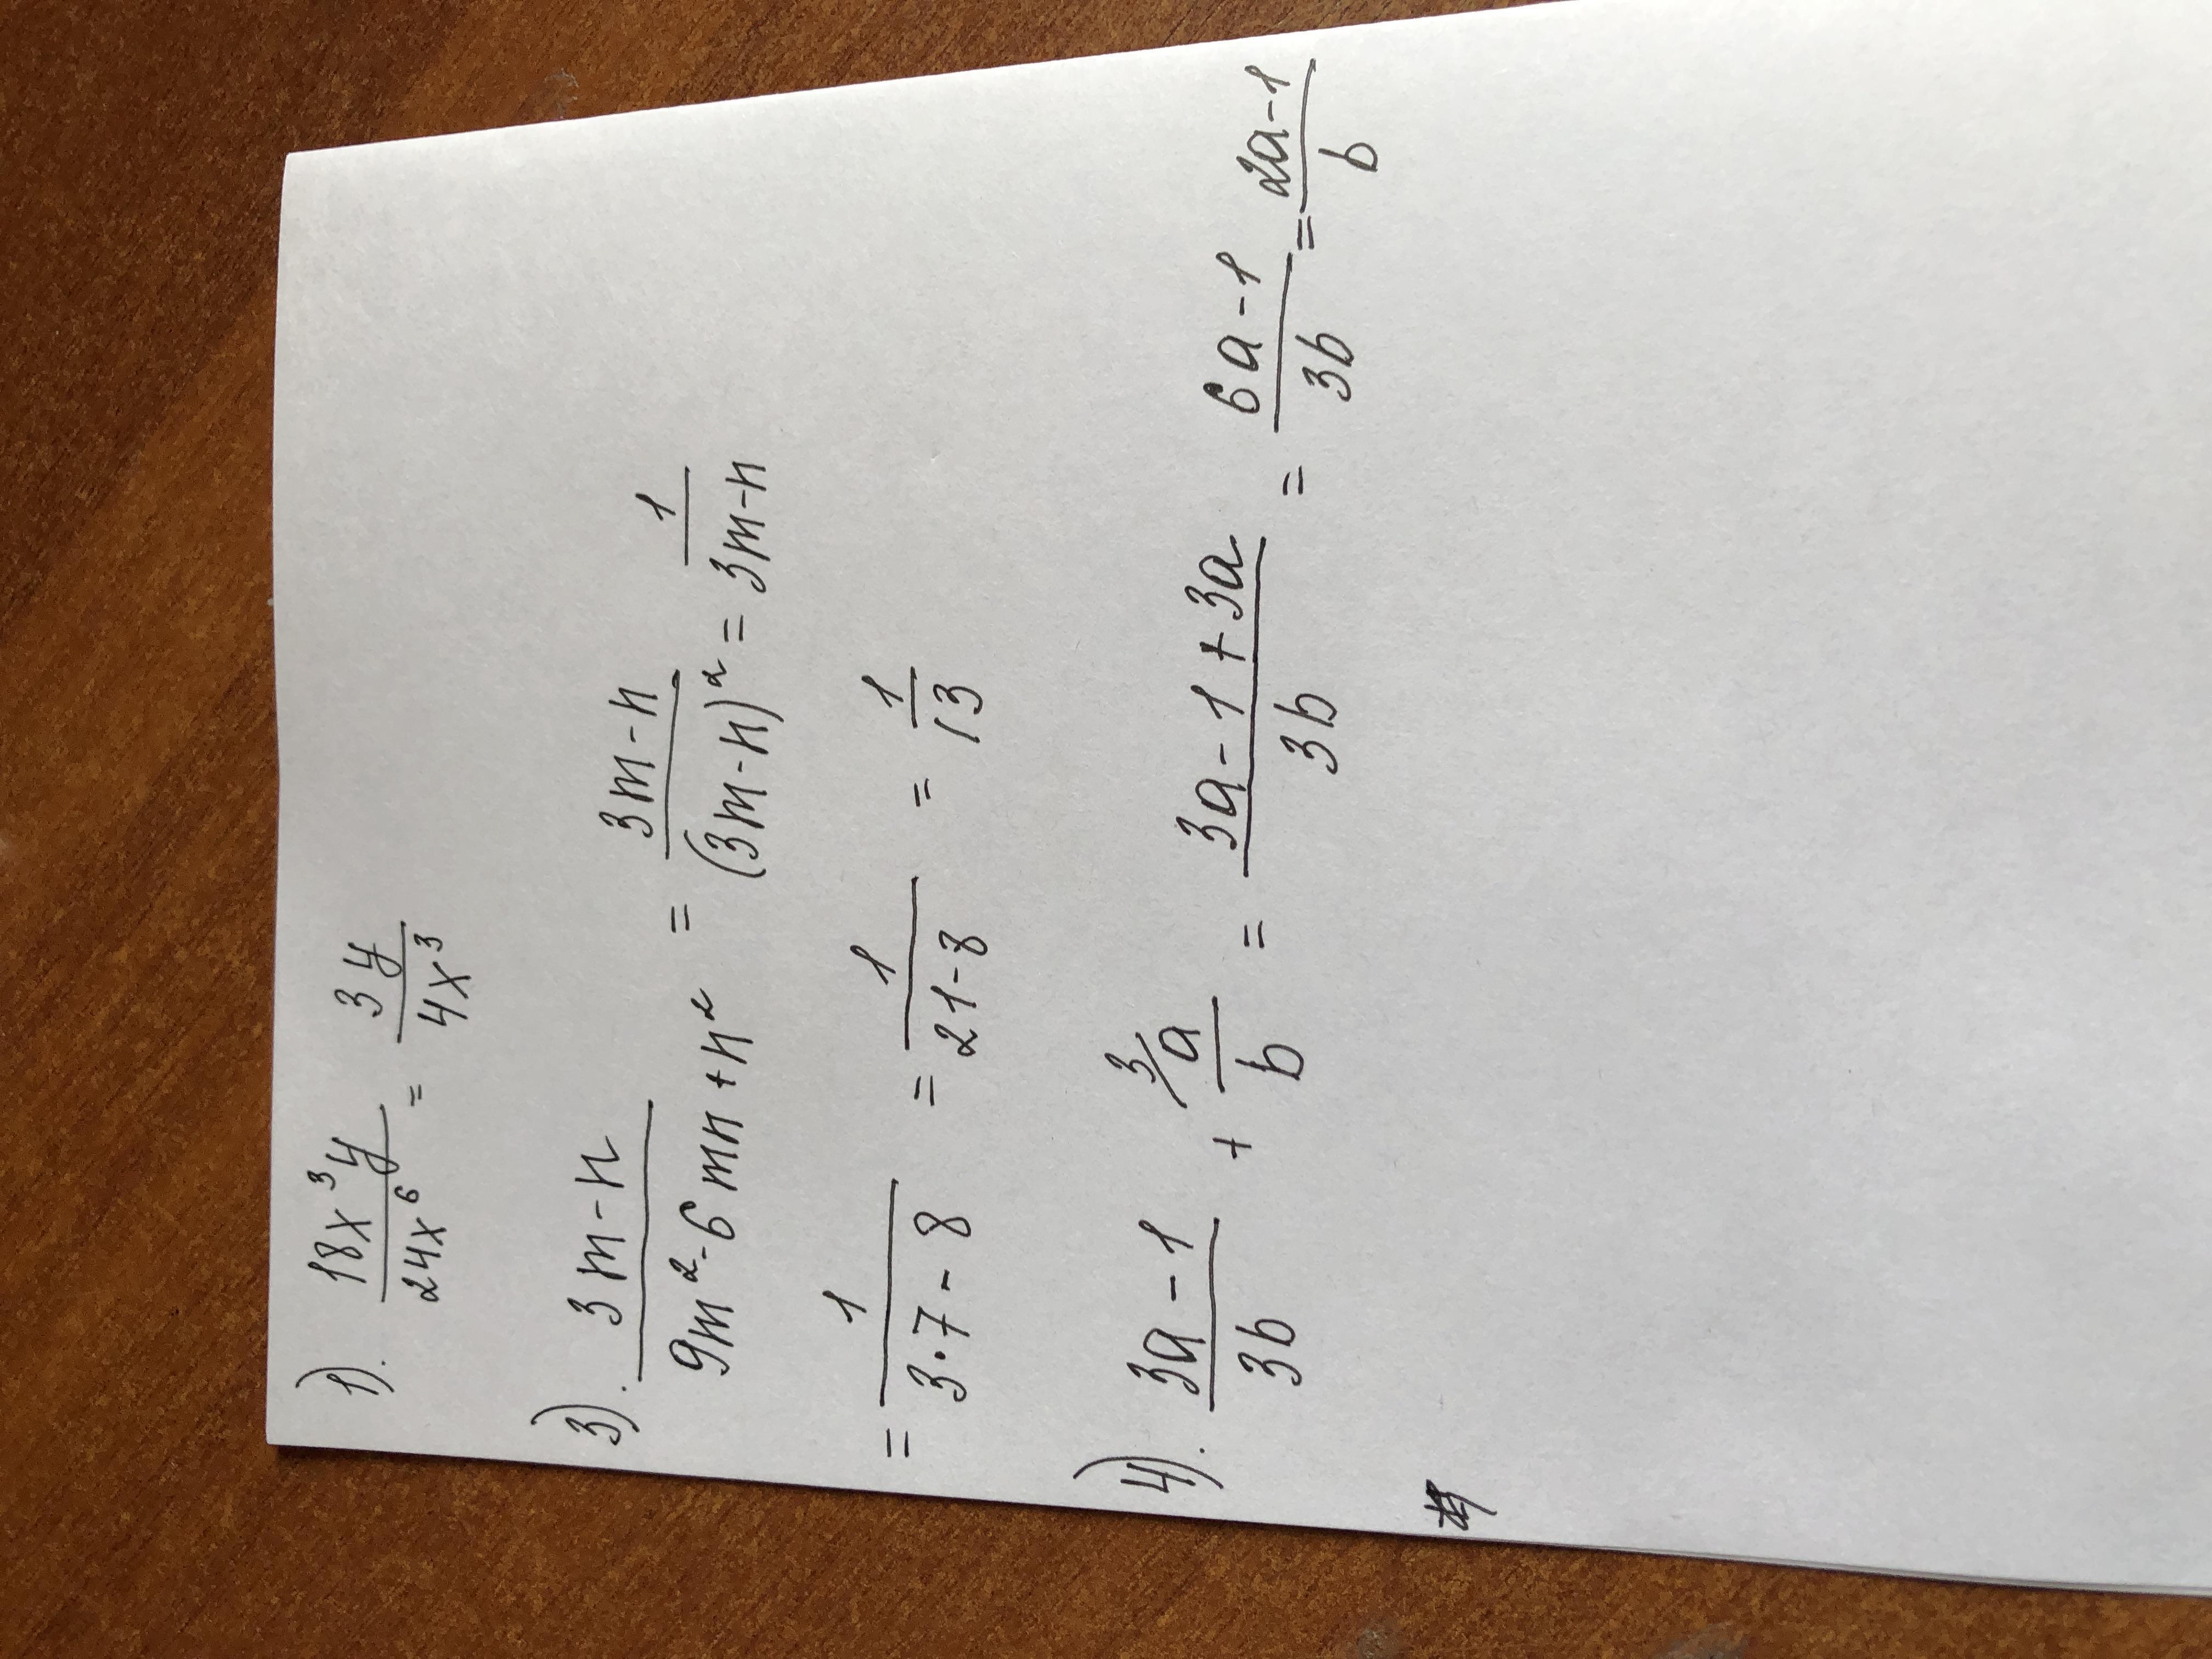 1). 18x³y/24x⁶ = 3y/4x³
3). 3m-n/9m²-6mn+n² = 3m-n/(3m-n)² = 1/3m-n
= 1/3·7-8 = 1/21-8 = 1/13
4). 3a-1/3b + ³⁄a/b = 3a-1+3a/3b = 6a-1/3b = 2a-1/b